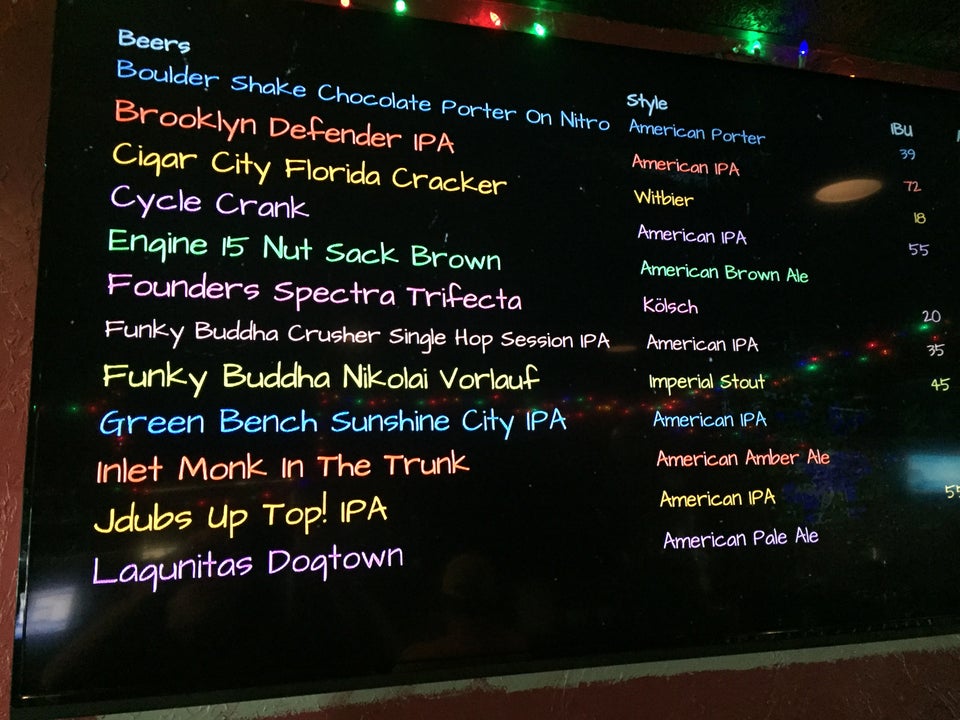 Beers Style IBU
Boulder Shake Chocolate Porter On Nitro American Porter 39
Brooklyn Defender IPA American IPA 72
Cigar City Florida Cracker Witbier 18
Cycle Crank American IPA 55
Engine 15 Nut Sack Brown American Brown Ale
Founders Spectra Trifecta Kölsch 20
Funky Buddha Crusher Single Hop Session IPA American IPA 35
Funky Buddha Nikolai Vorlauf Imperial Stout 45
Green Bench Sunshine City IPA American IPA
Inlet Monk In The Trunk American Amber Ale
Jdubs Up Top! IPA American IPA
Lagunitas Dogtown American Pale Ale